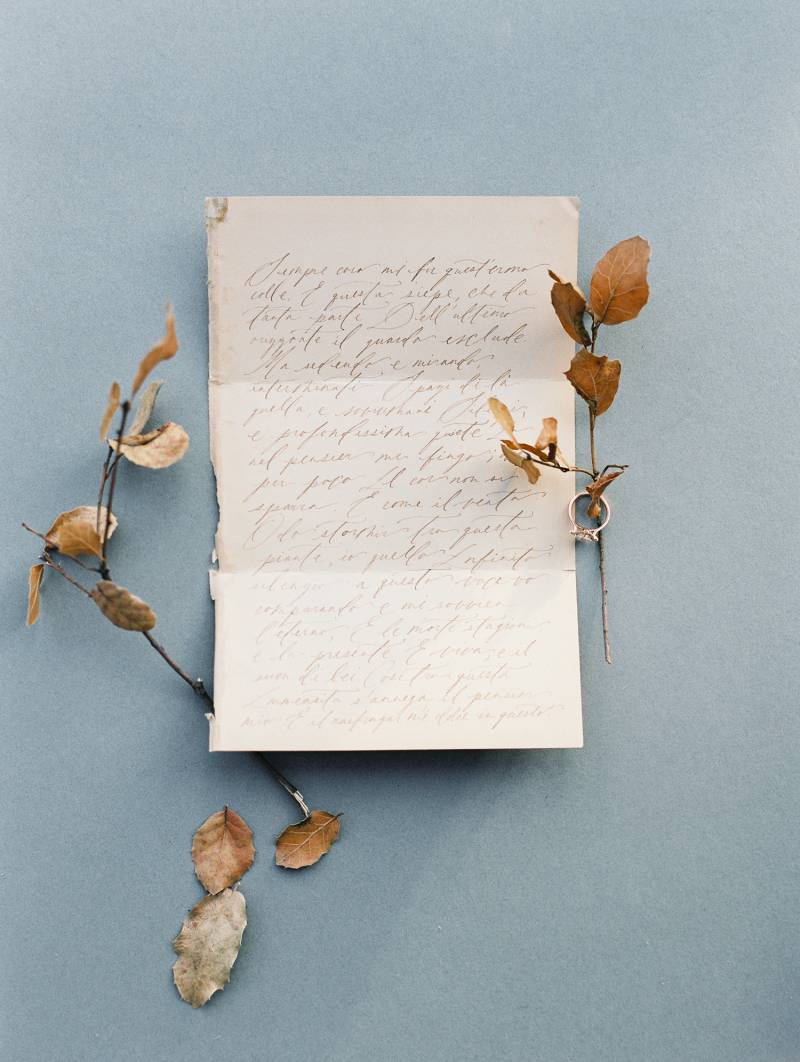 Sempre caro mi fu quest'ermo
colle, E questa siepe, che da
tanta parte Dell'ultimo
orizzonte il guardo esclude.
Ma sedendo e mirando,
interminati Spazi di là
quella, e sovrumani Silenzi,
e profondissima quiete
nel pensier mi fingo;
per poco Il cor non si
spaura E come il vento
Odo stormir tra queste
piante, io quello Infinito
silenzio a questa voce vo
comparando e mi sovvien
l'eterno, E le morte stagioni
e la presente E viva, e il
suon di lei Così tra questa
Immensità s'annega il pensier
mio E il naufragar m'è dolce in questo